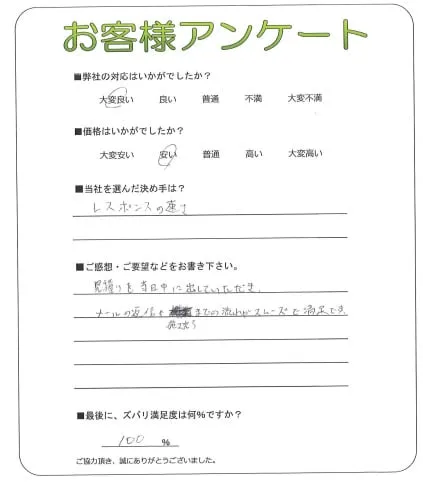 お客様アンケート
■弊社の対応はいかがでしたか?
大変良い 良い 普通 不満 大変不満
■価格はいかがでしたか?
大変安い 安い 普通 高い 大変高い
■当社を選んだ決め手は?
レスポンスの速さ
■ご感想・ご要望などをお書き下さい。
見積りを当日中に出していただき、
メールの返信や までの流れがスムーズで満足です。
■最後に、ズバリ満足度は何%ですか?
100 %
ご協力頂き、誠にありがとうございました。